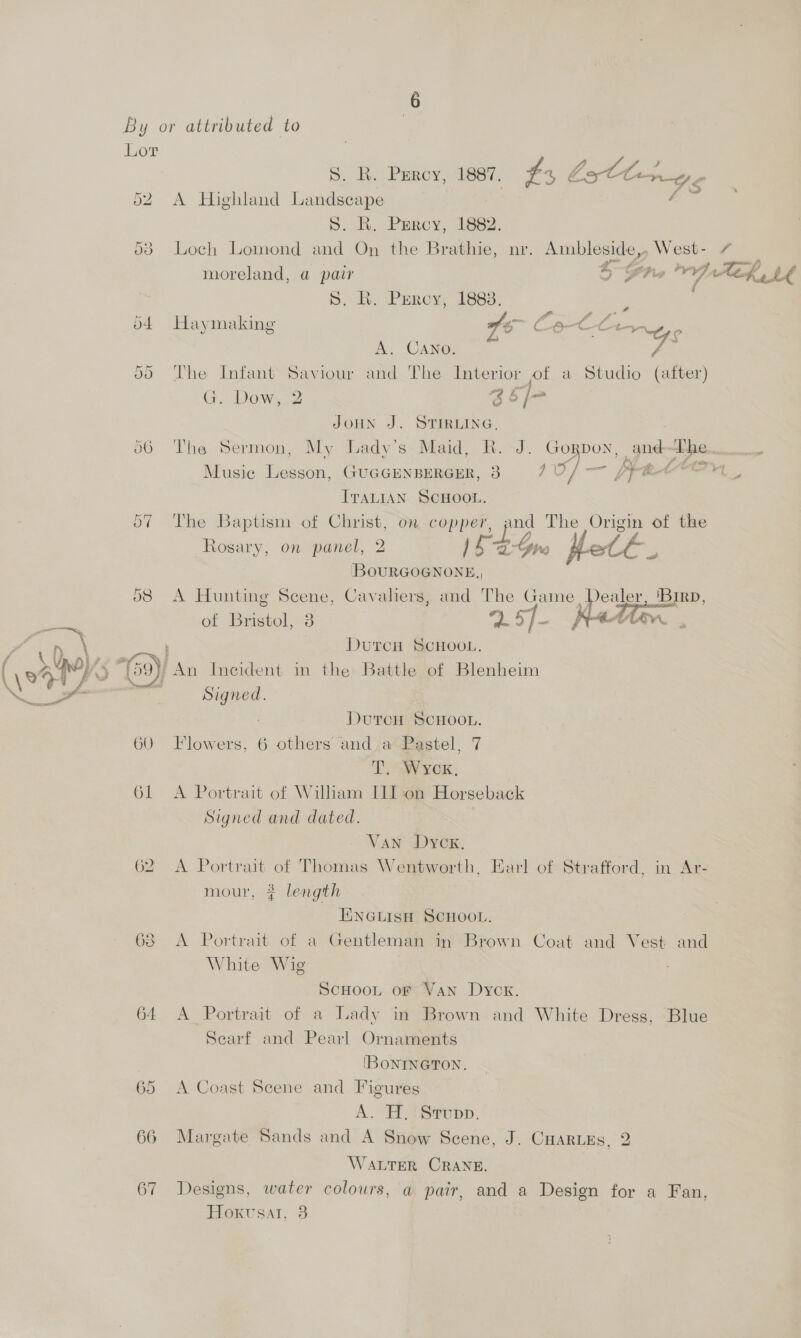 6
By or attributed to
Lot
S. R. Percy, 1887. £3 Collings
52 A Highland Landscape
S. R. Percy, 1882.
53 Loch Lomond and On the Brathie, nr. Ambleside, West-
moreland, a pair 5 Gns
S. R. Percy, 1883.
54 Haymaking Collings
A. Cano.
55 The Infant Saviour and The Interior of a Studio (after)
G. Dow, 2 35/-
John J. Stirling.
56 The Sermon, My Lady's Maid, R. J. Gordon, and The
Music Lesson, Guggenberger, 3 10/-
Italian School.
57 The Baptism of Christ, on copper, and The Origin of the
Rosary, on panel, 2 Gns
Bourgognone.,
58 A Hunting Scene, Cavaliers, and The Game Dealer, Bird,
of Bristol, 3 25/-
Dutch School.
59 An Incident in the Battle of Blenheim
Signed.
Dutch School.
60 Flowers, 6 others and a Pastel, 7
T. Wyck.
61 A Portrait of William III on Horseback
Signed and dated.
Van Dyck.
62 A Portrait of Thomas Wentworth, Earl of Strafford, in Ar-
mour, ¾ length
English School.
63 A Portrait of a Gentleman in Brown Coat and Vest and
White Wig
School of Van Dyck.
64 A Portrait of a Lady in Brown and White Dress, Blue
Scarf and Pearl Ornaments
Bonington.
65 A Coast Scene and Figures
A. H. Studd.
66 Margate Sands and A Snow Scene, J. Charles, 2
Walter Crane.
67 Designs, water colours, a pair, and a Design for a Fan,
Hokusai, 3